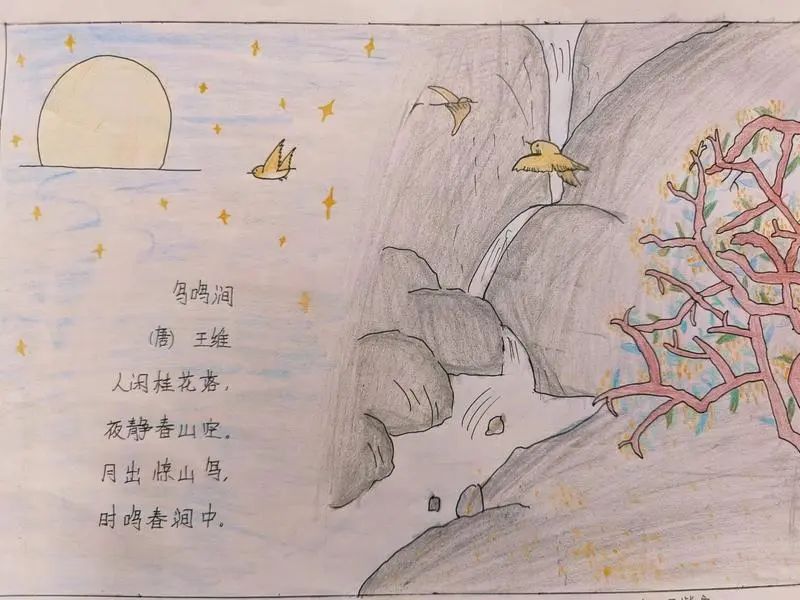 鸟鸣涧
(唐) 王维
人闲桂花落，
夜静春山空。
月出惊山鸟，
时鸣春涧中。